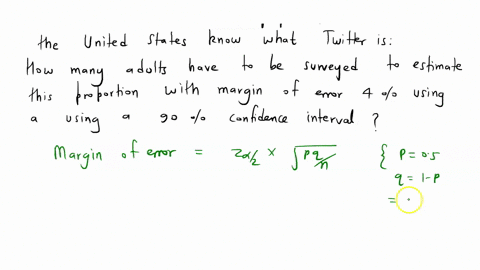 the United States know "what Twitter is:
How many adults have to be surveyed to estimate
this proportion with margin of error 4 % using
a using a 90 % confidence interval ?
Margin of error = Zα/2 × √pq/n { p = 0.5
q = 1-p
=